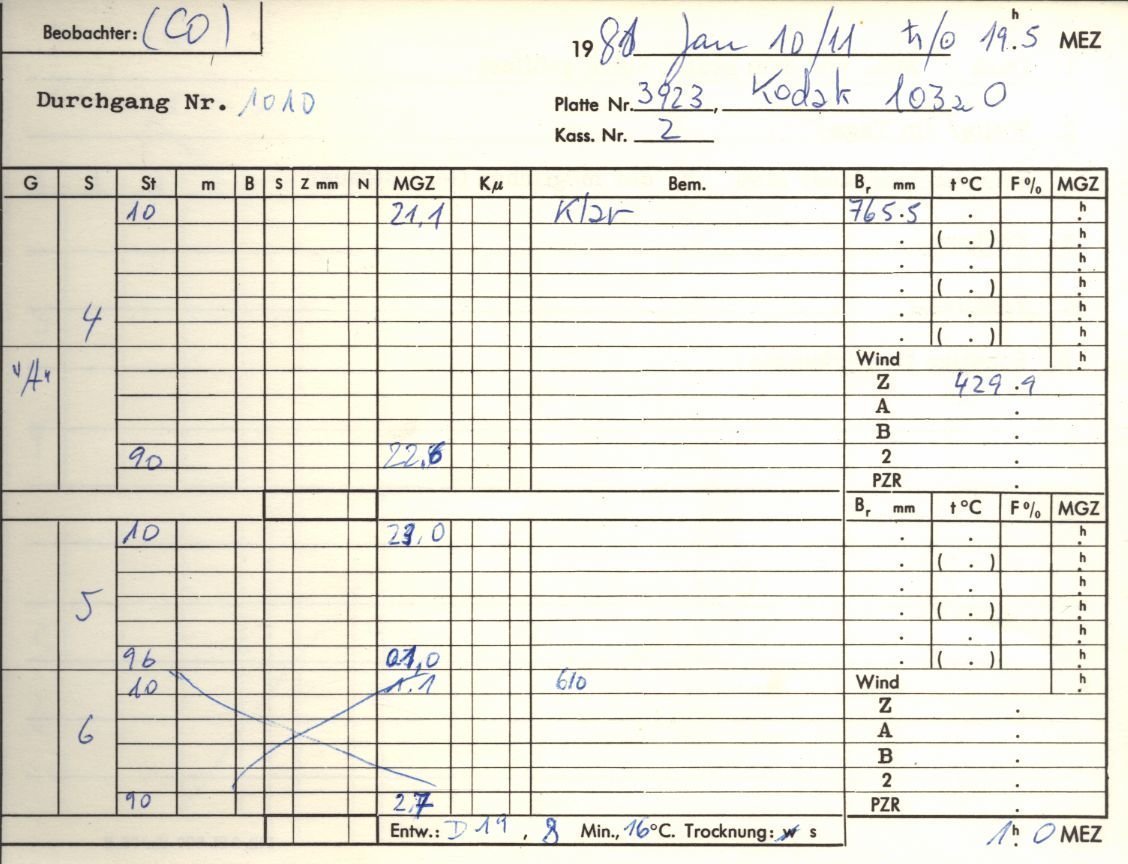 Beobachter: (CO)
1981 Jan 10/11 ħ/0 19h.5 MEZ
Durchgang Nr. 1010
Platte Nr. 3923, Kodak 103a O
Kass. Nr. 2
G S St m B S Z mm N MGZ Kμ Bem. Br mm t °C F % MGZ
10 21,1 Klar 765.5 . h.
. ( . ) h.
. . h.
. ( . ) h.
4 . . h.
. ( . ) h.
"A" Wind h.
Z 429.9
A .
B .
90 22,6 2 .
PZR .
Br mm t °C F % MGZ
10 23,0 . . h.
. ( . ) h.
. . h.
5 . ( . ) h.
. . h.
96 01,0 . ( . ) h.
10 1.1 610 Wind h.
Z .
6 A .
B .
2 .
90 2,7 PZR .
Entw.: D 19, 8 Min., 16°C. Trocknung: w s 1h. 0 MEZ